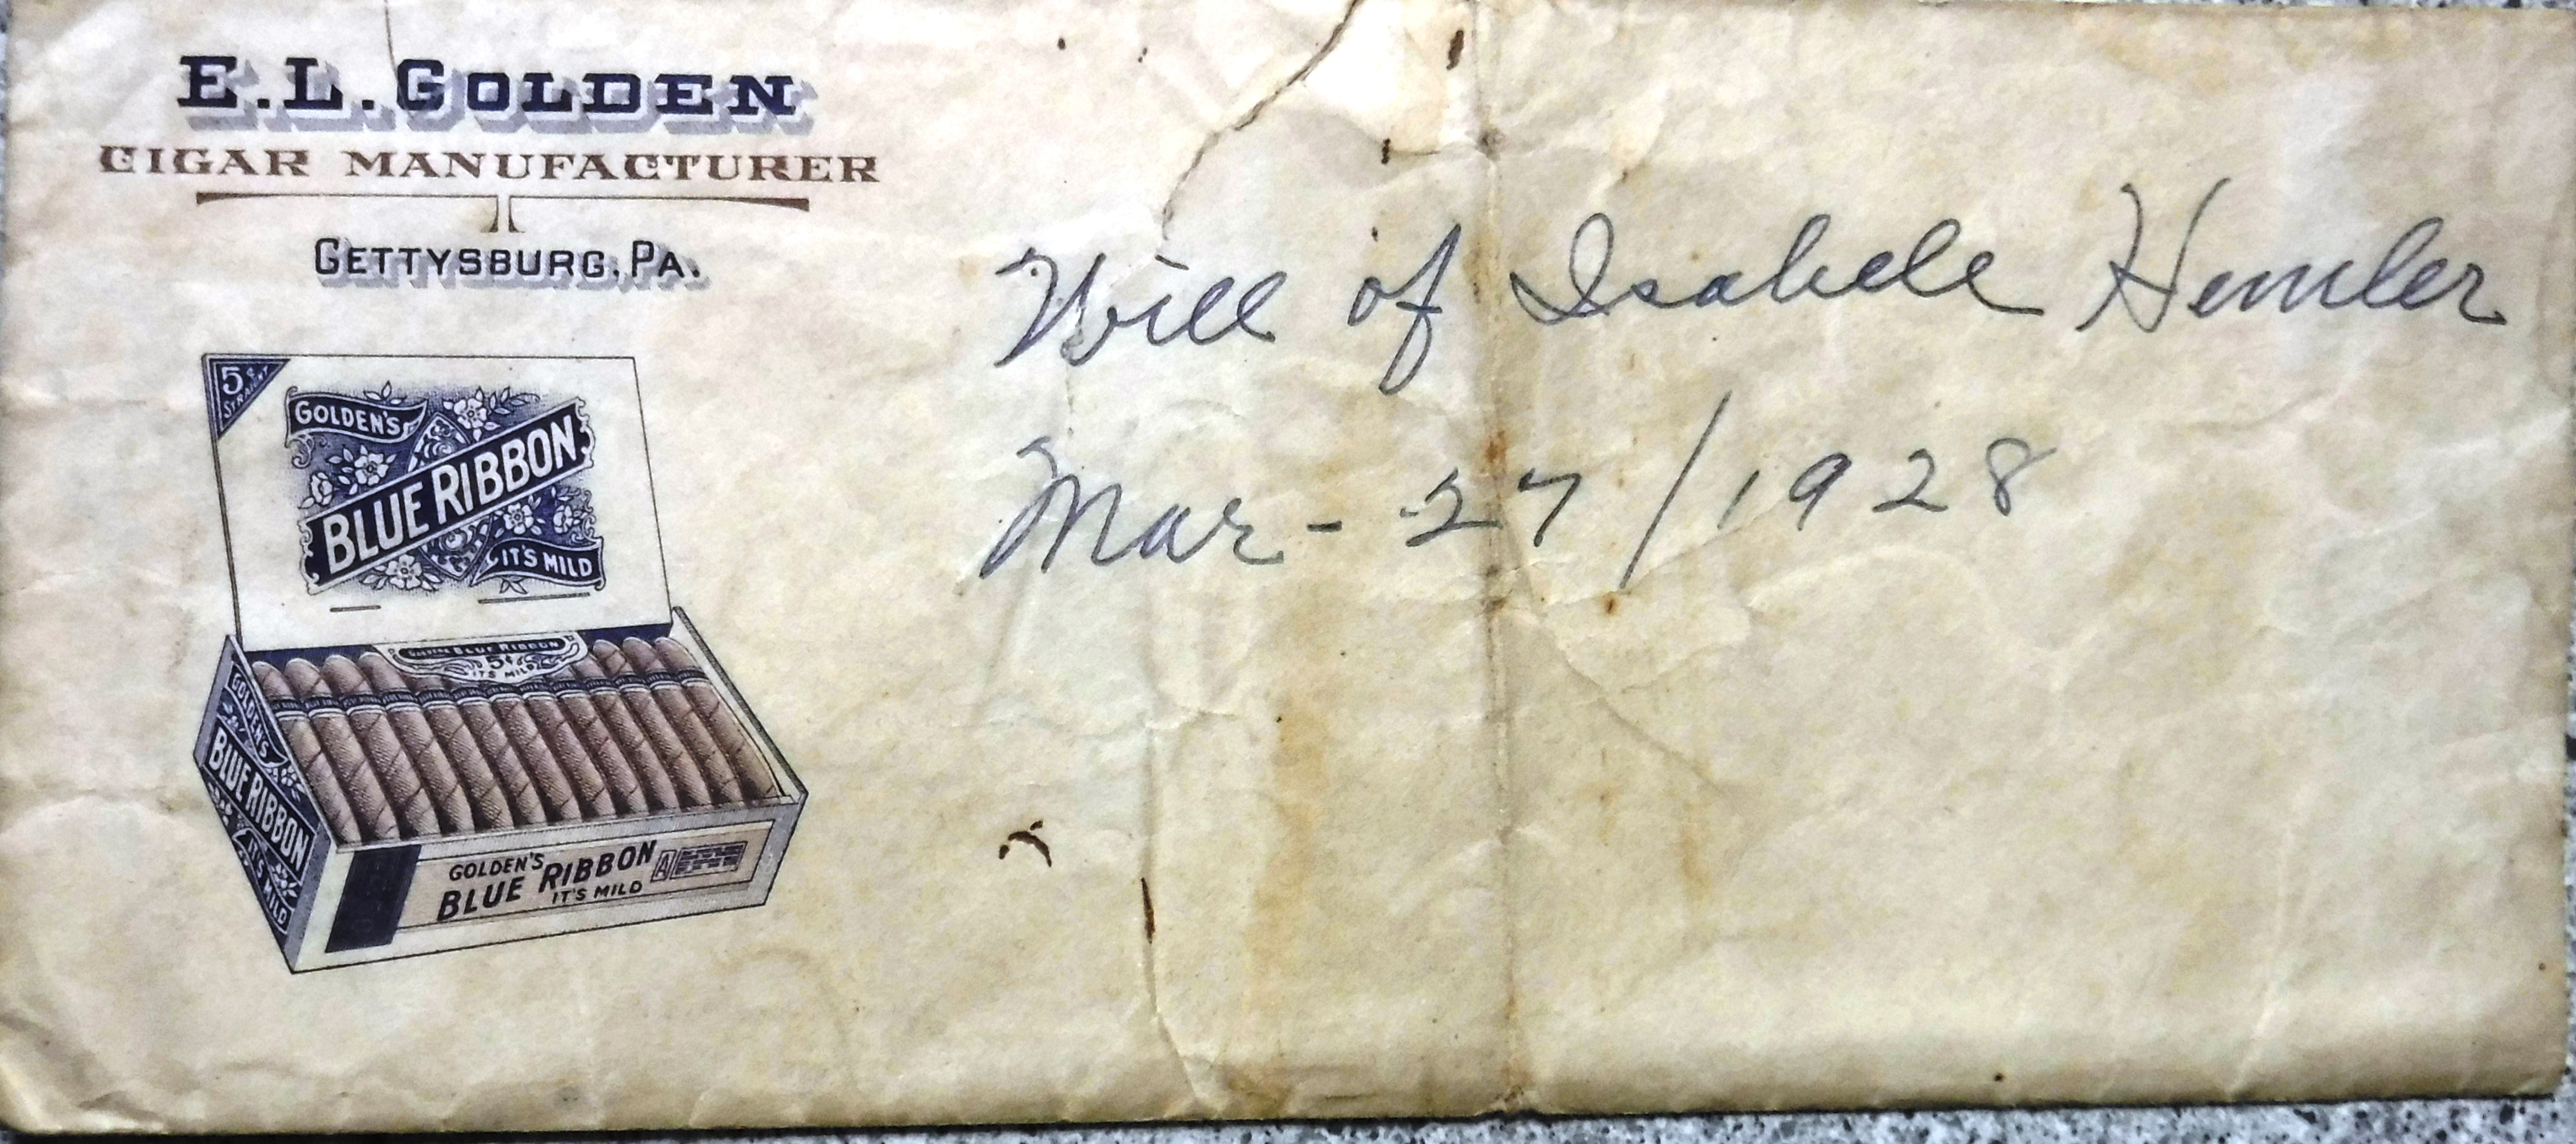 E.L. GOLDEN
CIGAR MANUFACTURER
GETTYSBURG, PA.
Will of Isabele Hemler
Mar - 27 / 1928
5¢
STRAIGHT
GOLDEN'S
BLUE RIBBON
IT'S MILD
BLUE RIBBON
5¢
ITS MILD
GOLDEN'S
BLUE RIBBON
IT'S MILD
GOLDEN'S
BLUE RIBBON
IT'S MILD